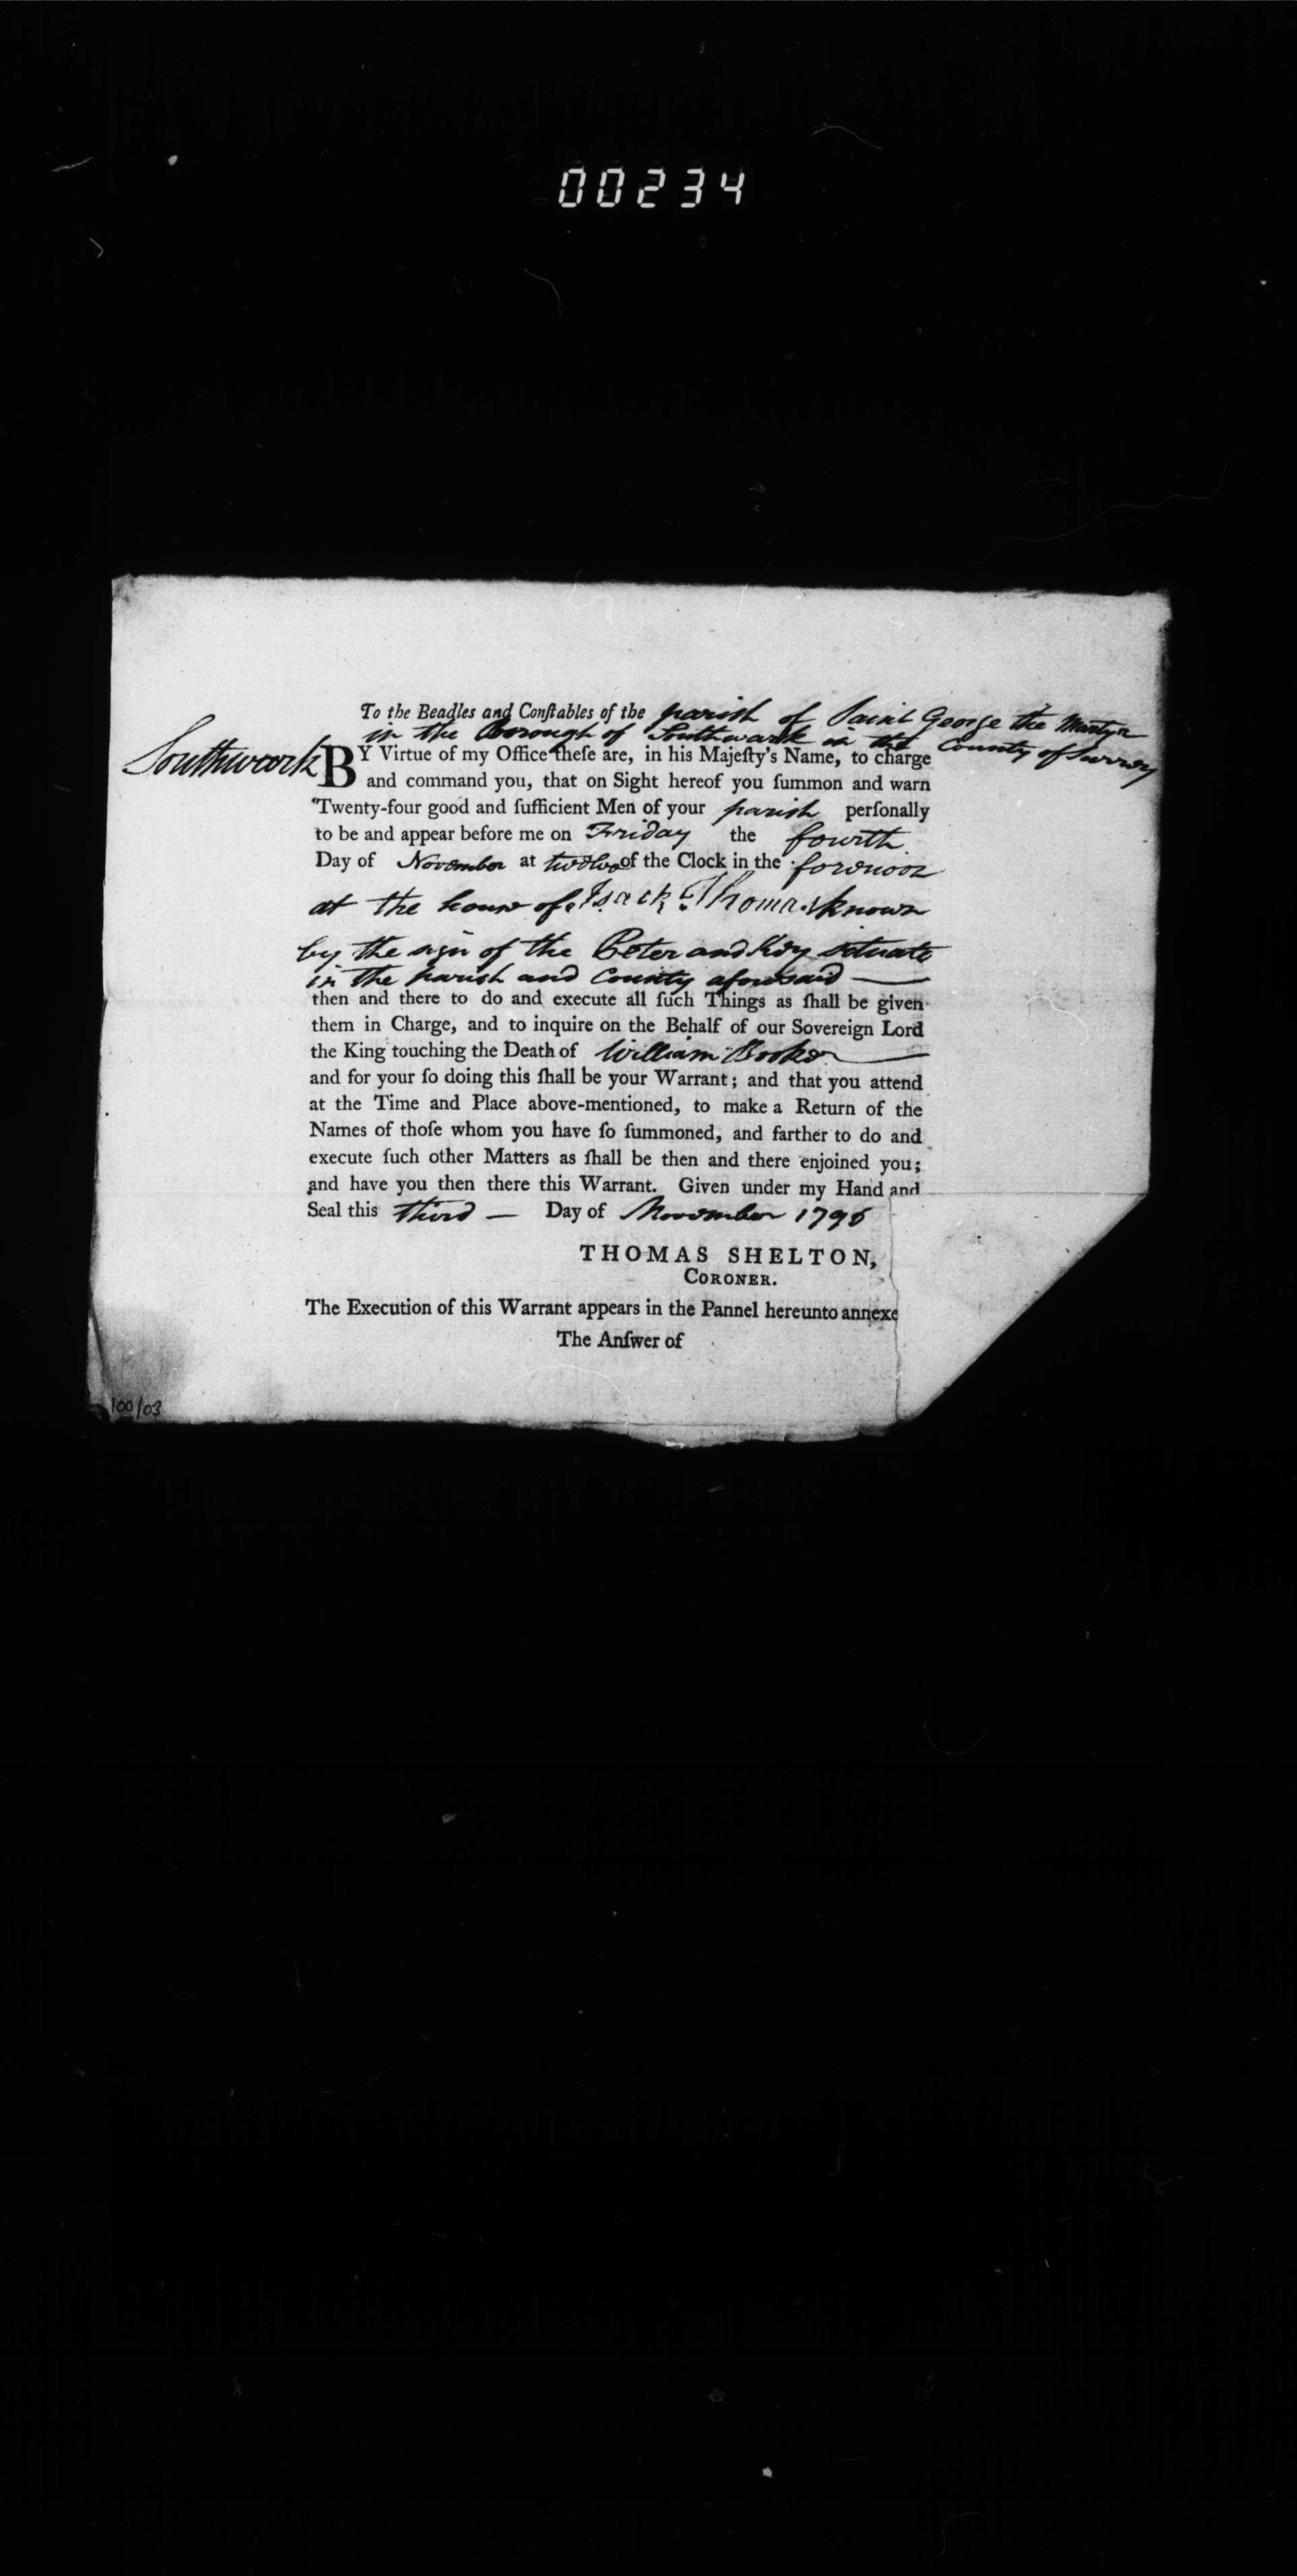 00234
To the Beadles and Conſtables of the parish of Saint George the Martyr
in the Borough of Southwark in the County of Surrey
Southwark BY Virtue of my Office theſe are, in his Majeſty's Name, to charge
and command you, that on Sight hereof you ſummon and warn
Twenty-four good and ſufficient Men of your parish perſonally
to be and appear before me on Friday the fourth
Day of November at twelve of the Clock in the forenoon
at the house of Isack Thomas known
by the sign of the Peter and Key situate
in the parish and County aforesaid —
then and there to do and execute all ſuch Things as ſhall be given
them in Charge, and to inquire on the Behalf of our Sovereign Lord
the King touching the Death of William Booker —
and for your ſo doing this ſhall be your Warrant; and that you attend
at the Time and Place above-mentioned, to make a Return of the
Names of thoſe whom you have ſo ſummoned, and farther to do and
execute ſuch other Matters as ſhall be then and there enjoined you;
and have you then there this Warrant. Given under my Hand and
Seal this third — Day of November 1796
THOMAS SHELTON,
CORONER.
The Execution of this Warrant appears in the Pannel hereunto annexe
The Anſwer of
100/03